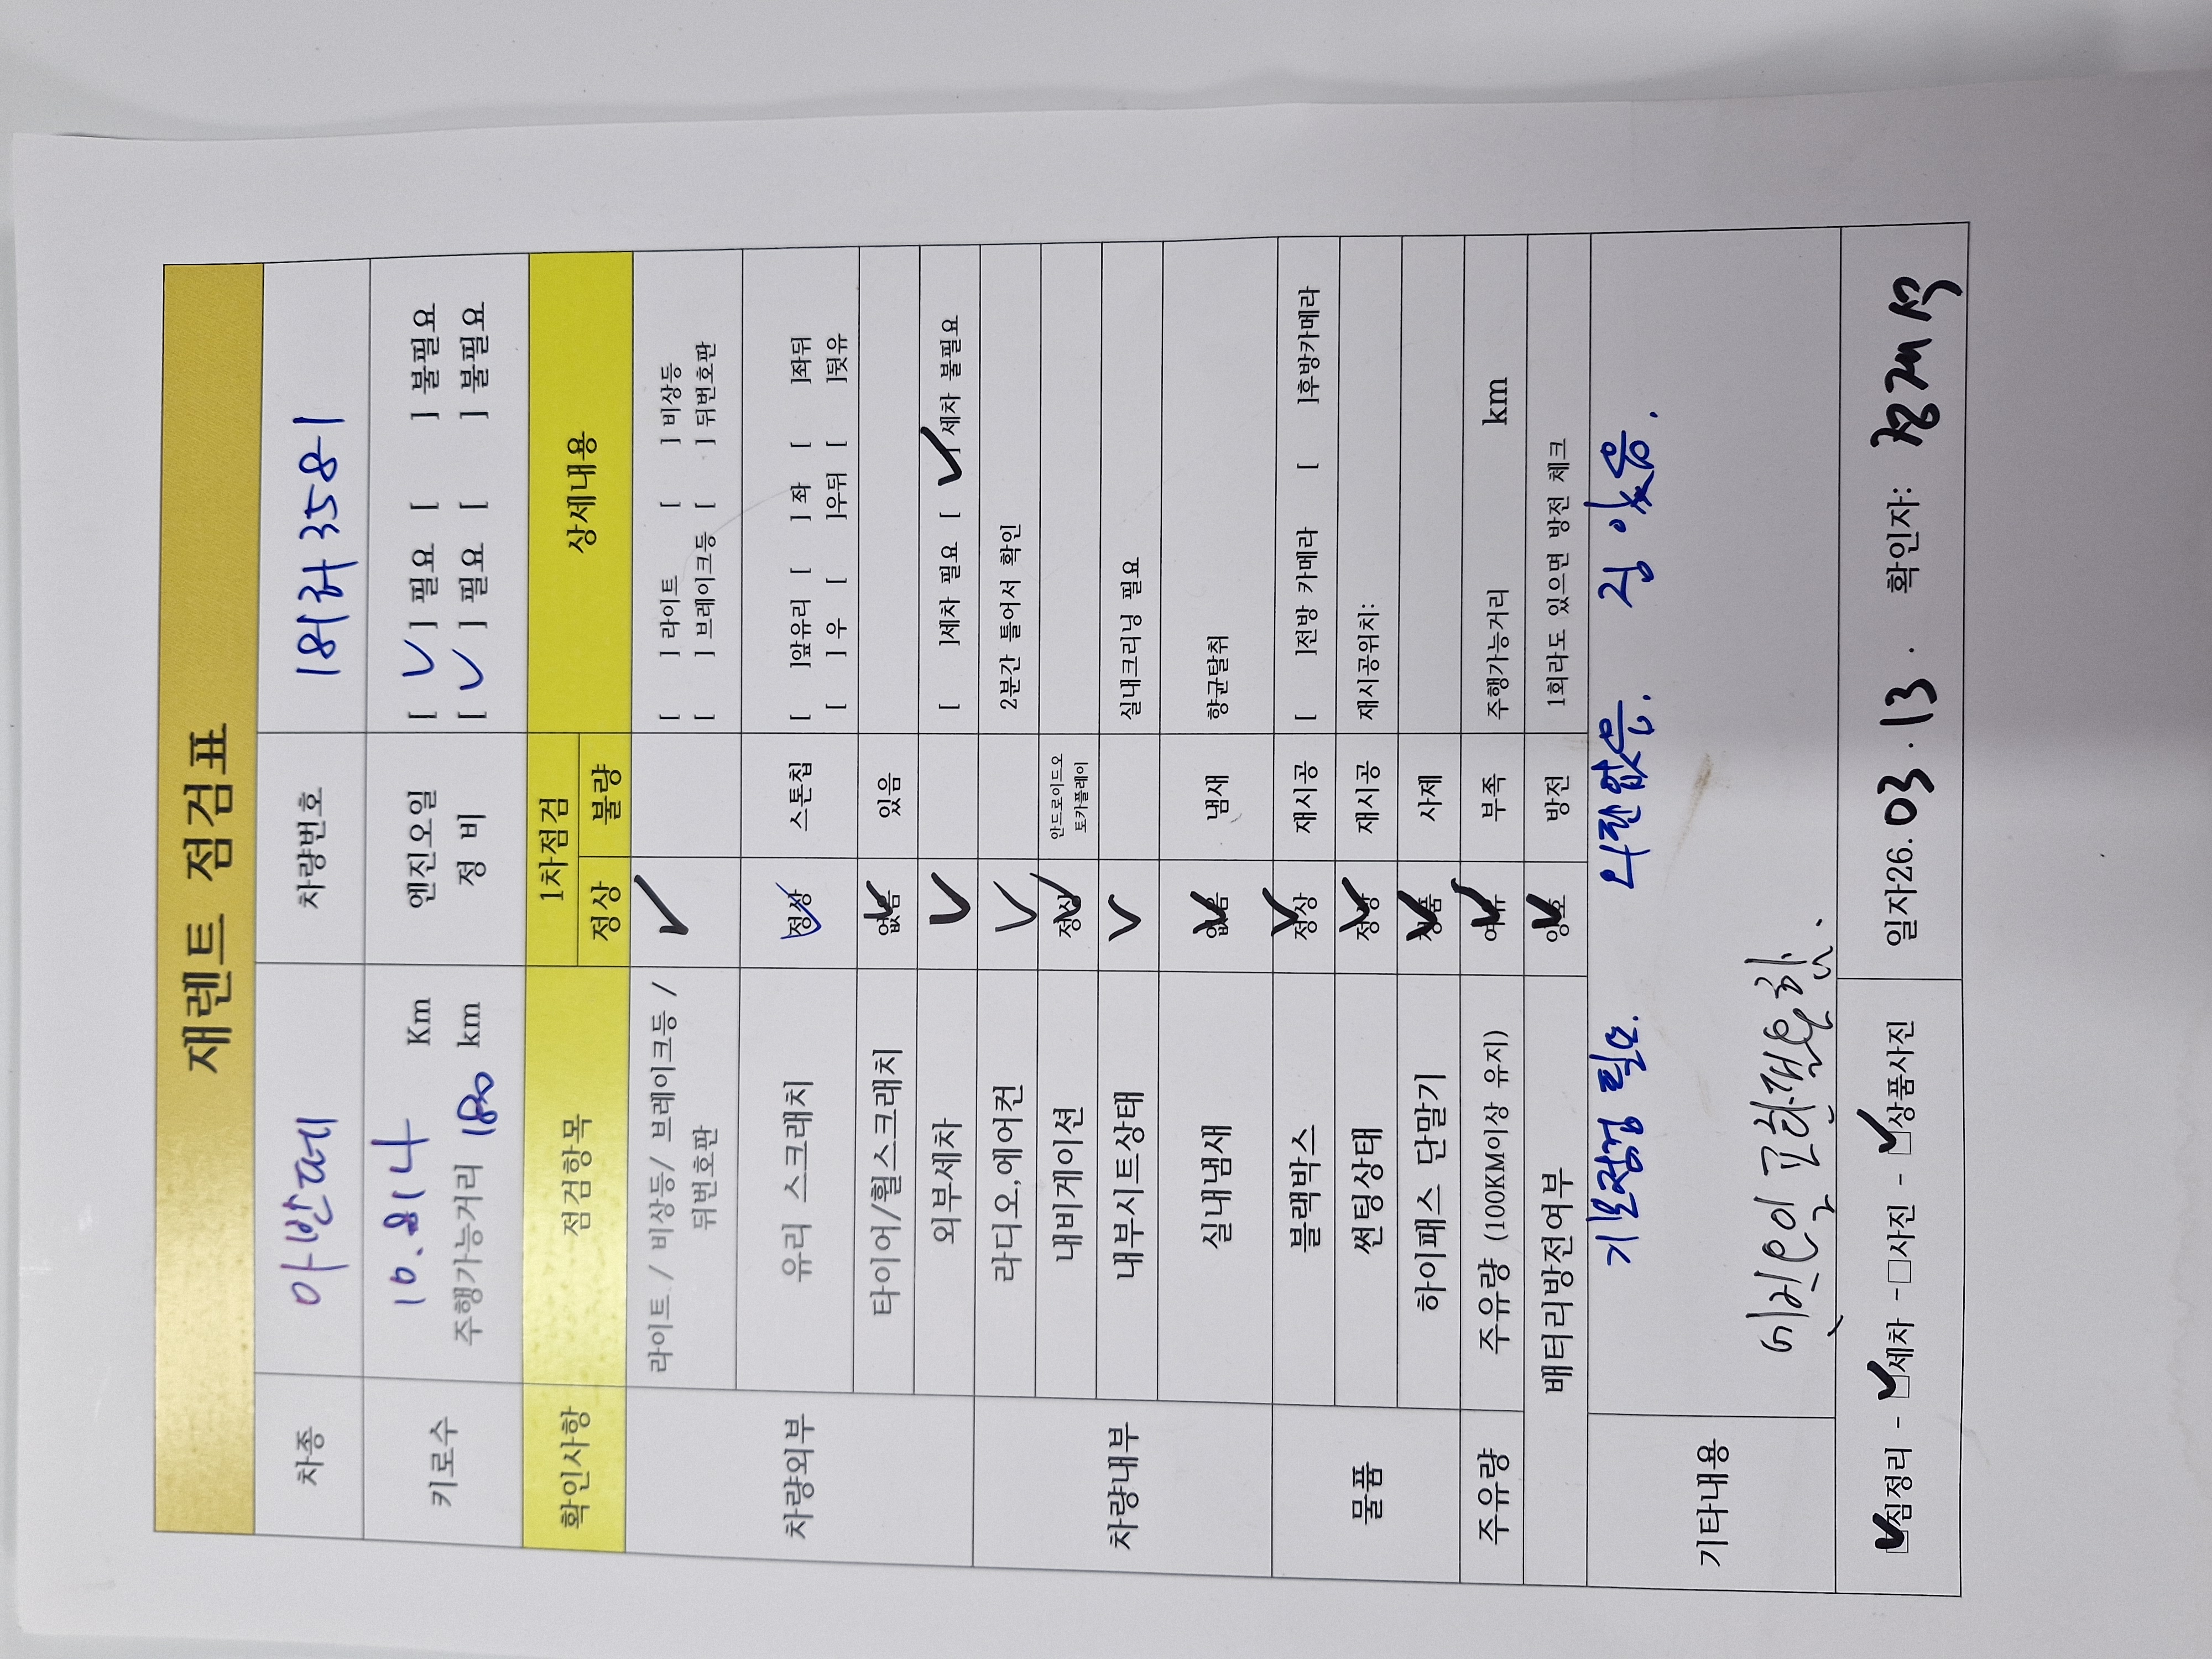 재렌트 점검표
차종 아반떼 차량번호 18허 3581
키로수 Km 엔진오일 [ ✓ ] 필요 [ ] 불필요
주행가능거리 180 km 정 비 [ ✓ ] 필요 [ ] 불필요
확인사항 점검항목 1차점검 상세내용
정상 불량
차량외부 라이트 / 비상등/ 브레이크등 / ✓ [ ] 라이트 [ ] 비상등
뒤번호판 [ ] 브레이크등 [ ] 뒤번호판
유리 스크래치 정상 ✓ 스톤칩 [ ]앞유리 [ ] 좌 [ ]좌뒤
[ ] 우 [ ]우뒤 [ ]뒷유
타이어/휠스크래치 없음 ✓ 있음
외부세차 ✓ [ ]세차 필요 [ ✓ ]세차 불필요
차량내부 라디오,에어컨 ✓ 2분간 틀어서 확인
내비게이션 정상 ✓ 안드로이드오
토카플레이
내부시트상태 ✓ 실내크리닝 필요
실내냄새 없음 ✓ 냄새 향균탈취
물품 블랙박스 정상 ✓ 재시공 [ ]전방 카메라 [ ]후방카메라
썬팅상태 정상 ✓ 재시공 재시공위치:
하이패스 단말기 정품 ✓ 사제
주유량 주유량 (100KM이상 유지) 여유 ✓ 부족 주행가능거리 km
배터리방전여부 양호 ✓ 방전 1회라도 있으면 방전 체크
기타내용 기본점검 필요. 외관없음. 짐 있음.
엔진오일 교환필요함.
☑짐정리 - ☑세차 -□사진 - ☑상품사진 일자26.03.13. 확인자: 정재석